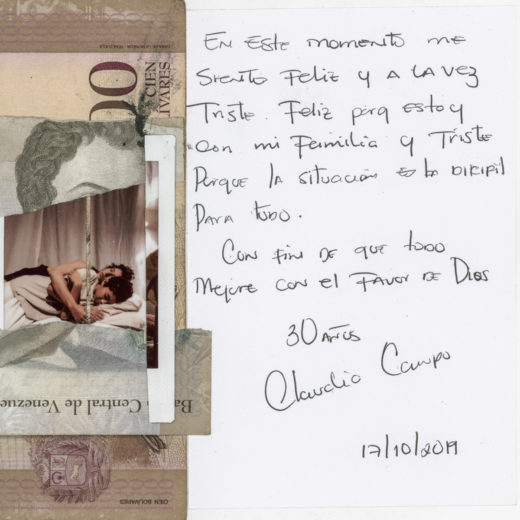 00
CIEN
LIVARES
Central de Venezue
CIEN BOLÍVARES
EN ESTE momento me
Siento Feliz y A la vez
Triste. Feliz porq estoy
con mi Familia y Triste
Porque la situación es to DIFICIL
PARA todo.
Con fin de que todo
Mejore con el favor de Dios
30 AÑOS
Claudia Campo
17/10/2019